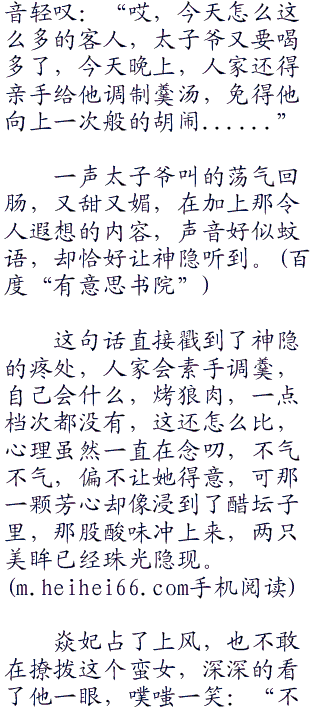 音轻叹：“哎，今天怎么这
么多的客人，太子爷又要喝
多了，今天晚上，人家还得
亲手给他调制羹汤，免得他
向上一次般的胡闹......”
一声太子爷叫的荡气回
肠，又甜又媚，在加上那令
人遐想的内容，声音好似蚊
语，却恰好让神隐听到。(百
度“有意思书院”)
这句话直接戳到了神隐
的疼处，人家会素手调羹，
自己会什么，烤狼肉，一点
档次都没有，这还怎么比，
心理虽然一直在念叨，不气
不气，偏不让她得意，可那
一颗芳心却像浸到了醋坛子
里，那股酸味冲上来，两只
美眸已经珠光隐现。
(m.heihei66.com手机阅读)
焱妃占了上风，也不敢
在撩拨这个蛮女，深深的看
了他一眼，噗嗤一笑：“不